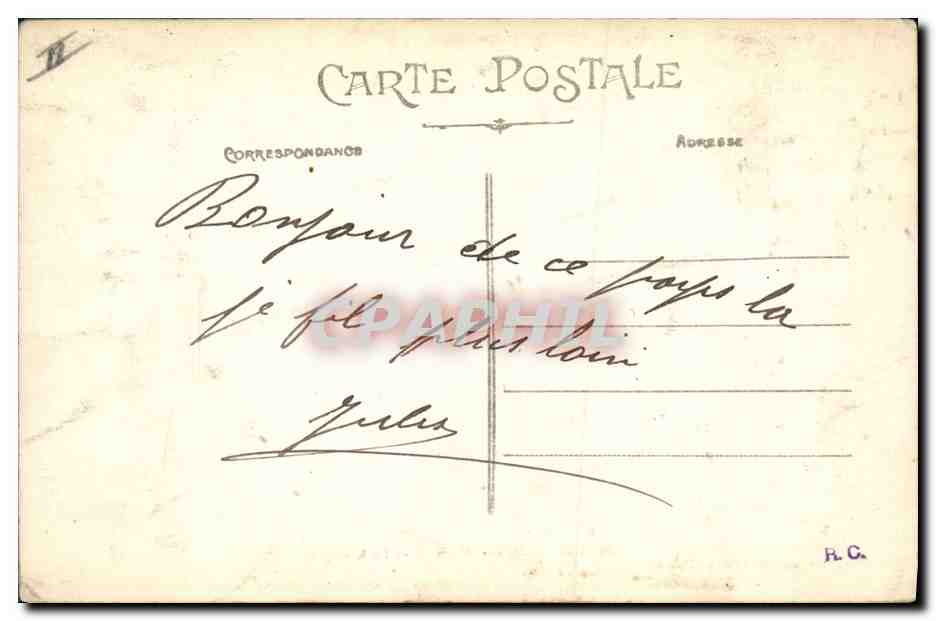 CARTE POSTALE
CORRESPONDANCE
ADRESSE
Bonjour de ce pays la
je fil plus loin
Jules
CPAPHIL
R. C.